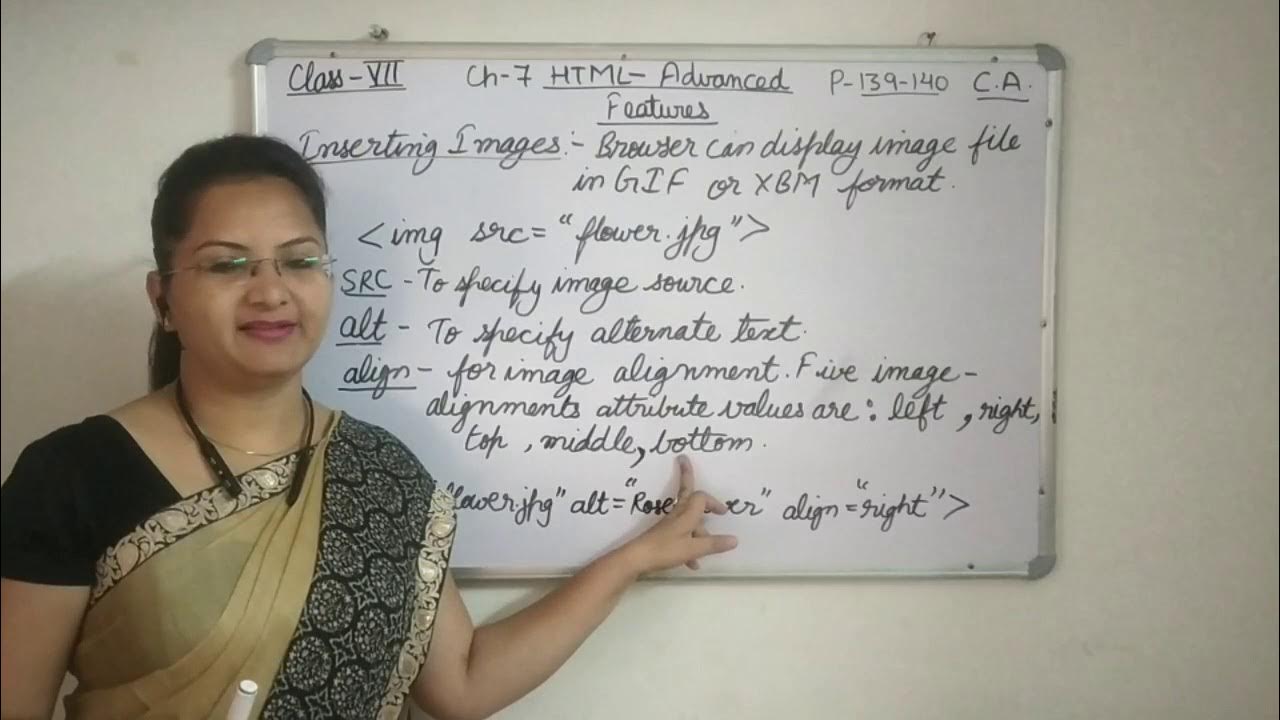 Class-VII Ch-7 HTML- Advanced P-139-140 C.A.
Features
Inserting Images:- Browser can display image file
in GIF or XBM format.
<img src="flower.jpg">
SRC - To specify image source.
alt - To specify alternate text.
align - for image alignment. Five image-
alignments attribute values are: left, right,
top, middle, bottom.
alt= align="right">